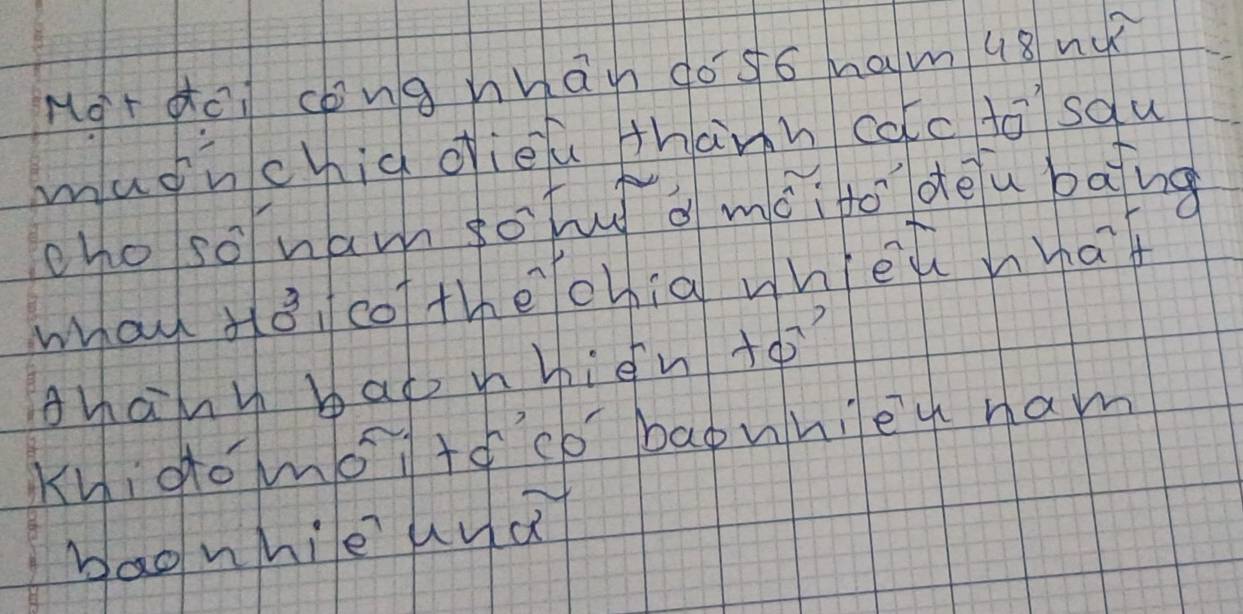 Một đội công nhân có 56 nam 48 nữ
muốn chia điều thành các tổ sau
cho số nam số nữ ở mỗi tổ đều bằng
nhau Hỏi có thể chia nhiều nhất
thành bao nhiên tổ
Khi đó mỗi tổ có bao nhiêu nam
bao nhiêu nữ